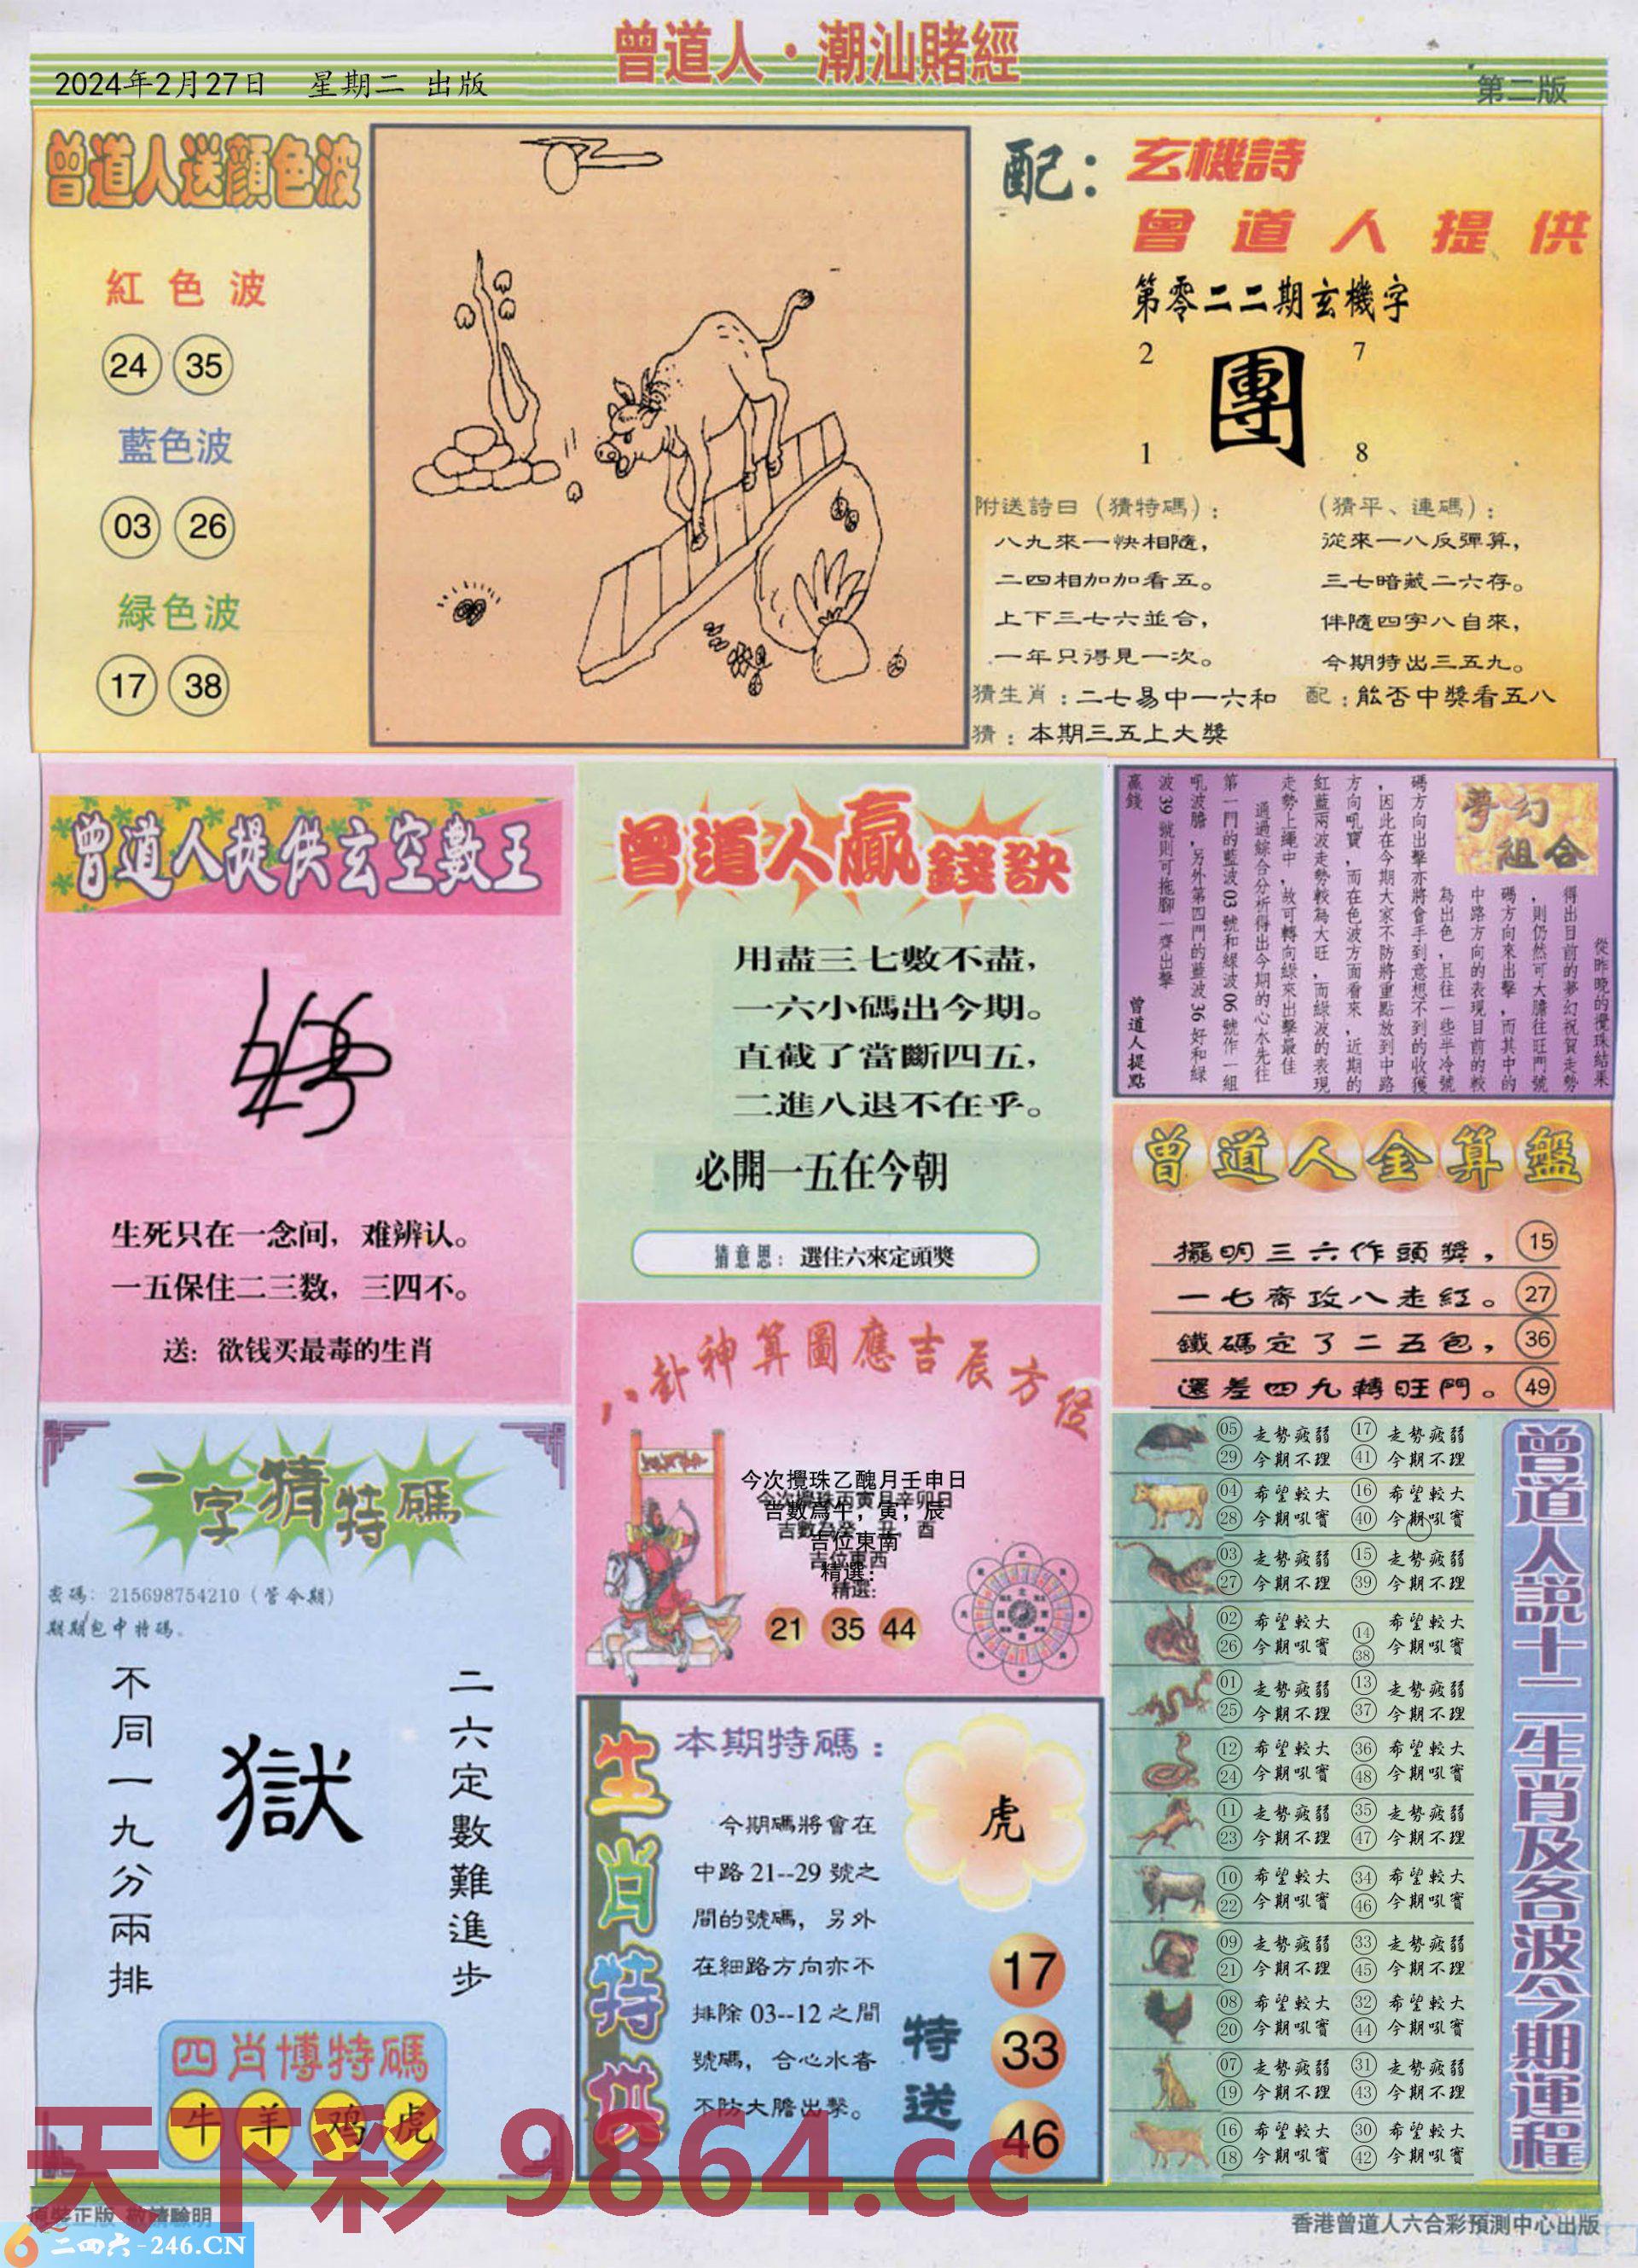 曾道人·潮汕賭經
2024年2月27日 星期二 出版
第二版
曾道人送顔色波
紅色波
24 35
藍色波
03 26
緑色波
17 38
配：
玄機詩
曾道人提供
第零二二期玄機字
2 7
團
1 8
附送詩日（猜特碼）：
八九來一快相隨，
二四相加加看五。
上下三七六並合，
一年只得見一次。
（猜平、連碼）：
從來一八反彈算，
三七暗藏二六存。
伴隨四字八自來，
今期特出三五九。
猜生肖：二七易中一六和 配：能否中獎看五八
猜：本期三五上大獎
曾道人提供玄空數王
生死只在一念间，难辨认。
一五保住二三数，三四不。
送：欲钱买最毒的生肖
曾道人贏錢訣
用盡三七數不盡，
一六小碼出今期。
直截了當斷四五，
二進八退不在乎。
必開一五在今朝
猜意思：選住六來定頭獎
夢幻組合
從昨晚的攪珠結果
得出目前的夢幻祝賀走勢
，則仍然可大膽往旺門號
碼方向來出擊，而其中的
中路方向的表現目前的較
為出色，且往一些半冷號
碼方向出擊亦將會手到意想不到的收獲
，因此在今期大家不防將重點放到中路
方向吼寶，而在色波方面看來，近期的
紅藍兩波走勢較為大旺，而綠波的表現
走勢上繩中，故可轉向綠來出擊最佳
通過綜合分析得出今期的心水先往
第一門的藍波03號和綠波06號作一組
吼波膽，另外第四門的藍波36好和綠
波39號則可拖腳一齊出擊
贏錢
曾道人提點
曾道人金算盤
擺明三六作頭獎， 15
一七齊攻八走紅。 27
鐵碼定了二五包， 36
還差四九轉旺門。 49
八卦神算圖應吉辰方位
今次攪珠乙醜月壬申日
今次攪珠丙寅月辛卯日
吉數爲午，寅，辰
吉數為癸，丑，酉
吉位東南
吉位東西
精選：
精選：
21 35 44
一字猜特碼
密碼：215698754210（管令期）
期期包中特碼。
二六定數難進步
獄
不同一九分兩排
四肖博特碼
牛 羊 鸡 虎
生肖特供
本期特碼：
虎
今期碼將會在
中路21--29號之
間的號碼，另外
在細路方向亦不
排除03--12之間
號碼，合心水者
不防大膽出擊。
特送
17
33
46
曾道人說十二生肖及各波今期運程
05 走勢疲弱 17 走勢疲弱
29 今期不理 41 今期不理
04 希望較大 16 希望較大
28 今期吼寶 40 今期吼寶
03 走勢疲弱 15 走勢疲弱
27 今期不理 39 今期不理
02 希望較大 14 希望較大
26 今期吼寶 38 今期吼寶
01 走勢疲弱 13 走勢疲弱
25 今期不理 37 今期不理
12 希望較大 36 希望較大
24 今期吼寶 48 今期吼寶
11 走勢疲弱 35 走勢疲弱
23 今期不理 47 今期不理
10 希望較大 34 希望較大
22 今期吼寶 46 今期吼寶
09 走勢疲弱 33 走勢疲弱
21 今期不理 45 今期不理
08 希望較大 32 希望較大
20 今期吼寶 44 今期吼寶
07 走勢疲弱 31 走勢疲弱
19 今期不理 43 今期不理
16 希望較大 30 希望較大
18 今期吼寶 42 今期吼寶
天下彩 9864.cc
原裝正版 敬請驗明
二四六-246.CN
香港曾道人六合彩預測中心出版